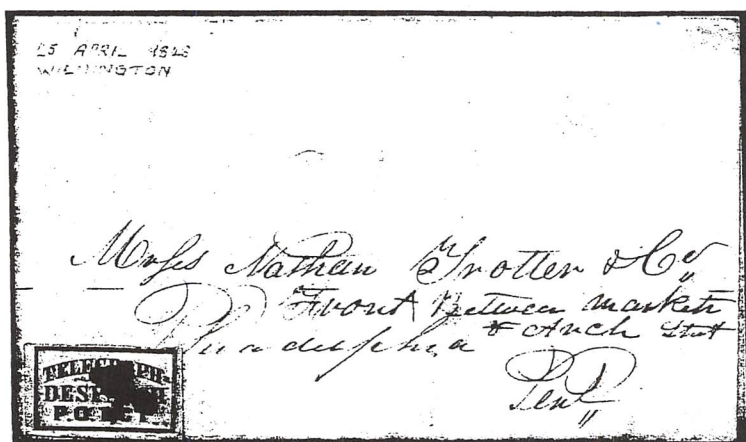 25 APRIL 1848
WILMINGTON
Messrs Nathan Trotter & Co
Front Between Market
& Arch Street
Philadelphia
Pena
TELEGRAPH-
DESPATCH
P.O.